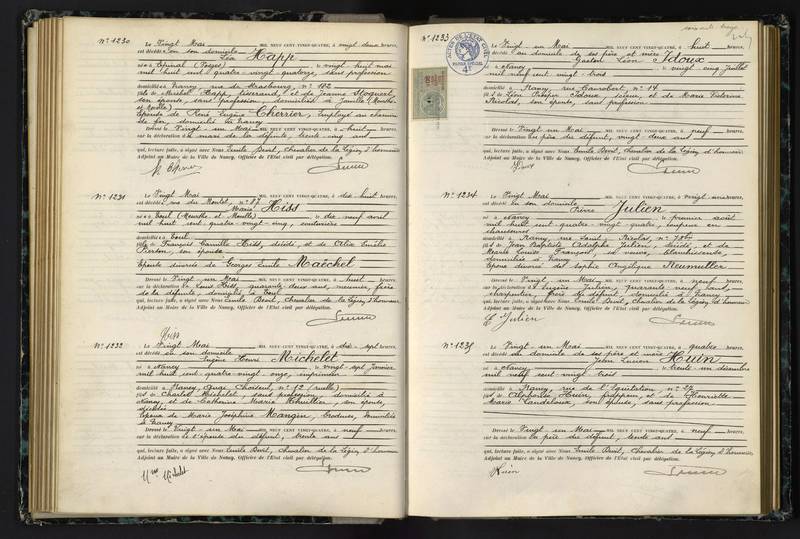 N° 1230
Le Vingt Mai MIL NEUF CENT VINGT-QUATRE, à vingt-deux heures,
est décédée en son domicile
Léa Happ
née à Epinal (Vosges) le vingt huit mai
mil huit cent quatre-vingt quatorze, sans profession
domiciliée à Nancy, rue de Strasbourg, n° 182
fille de Happ, tisserand, et de Jeanne
son épouse, sans profession, domiciliés à Jarville (Meurthe-
et-Moselle)
Epouse de René Eugène Cherrier, employé au chemin
de fer, domicilié à Nancy
Dressé le Vingt-un Mai à huit heures,
sur la déclaration du mari de la défunte, trente cinq ans
qui, lecture faite, a signé avec Nous Emile Beuil, Chevalier de la Légion d'honneur
Adjoint au Maire de la Ville de Nancy, Officier de l'Etat civil par délégation.
N° 1231
Le Vingt Mai MIL NEUF CENT VINGT-QUATRE, à dix-huit heures,
est décédée rue du Montet, n° 87
Marie Hiss
née à Toul (Meurthe et Moselle) le dix neuf avril
mil huit cent quatre-vingt-cinq, couturière
domiciliée à Toul
fille de François Camille Hiss, décédé, et de Célie Emélie
Pierson, son épouse
Epouse divorcée de Georges Emile Maëchel
Dressé le Vingt-un Mai à huit heures,
sur la déclaration de Louis Hiss, quarante-deux ans, menuisier, frère
de la défunte, domicilié à Toul
qui, lecture faite, a signé avec Nous Emile Beuil, Chevalier de la Légion d'honneur
Adjoint au Maire de la Ville de Nancy, Officier de l'Etat civil par délégation.
Hiss
N° 1232
Le Vingt Mai MIL NEUF CENT VINGT-QUATRE, à dix-sept heures,
est décédé en son domicile
Eugène Henri Michelet
né à Nancy le vingt-sept Janvier
mil huit cent quatre-vingt onze, imprimeur
domicilié à Nancy, Quai Choiseul, n° 12 (ruelle)
fils de Charles Michelet, sans profession, domicilié à
Nancy, et de Catherine Marie son épouse
décédée
Epoux de Marie Joséphine Mangin, brodeuse, domiciliée
à Nancy
Dressé le Vingt-un Mai à neuf heures,
sur la déclaration de l'épouse du défunt, trente ans
qui, lecture faite, a signé avec Nous Emile Beuil, Chevalier de la Légion d'honneur
Adjoint au Maire de la Ville de Nancy, Officier de l'Etat civil par délégation.
Mme Michelet
N° 1233
Le Vingt-un Mai MIL NEUF CENT VINGT-QUATRE, à huit heures,
est décédé au domicile de ses père et mère
Gaston Léon Idoux
né à Nancy le vingt cinq Juillet
mil neuf cent vingt-trois
domicilié à Nancy, rue Canrobert, n° 14
fils de Léon Prosper Idoux, et de Marie Victorine
Nicolas, son épouse, sans profession
Dressé le Vingt-un Mai à neuf heures,
sur la déclaration du père du défunt, vingt-deux ans
qui, lecture faite, a signé avec Nous Emile Beuil, Chevalier de la Légion d'honneur
Adjoint au Maire de la Ville de Nancy, Officier de l'Etat civil par délégation.
N° 1234
Le Vingt Mai MIL NEUF CENT VINGT-QUATRE, à vingt-une heures,
est décédé en son domicile
Pierre Julien
né à Nancy le premier août
mil huit cent quatre-vingt-quatre, coupeur en
chaussures
domicilié à Nancy, rue Saint Nicolas, n°
fils de Jean Baptiste Adolphe Julien, décédé, et de
Marie Louise François, sa veuve, blanchisseuse,
domiciliée à Nancy
Epoux divorcé de Sophie Angélique Neumuller
Dressé le Vingt-un Mai à neuf heures,
sur la déclaration de Eugène Julien, quarante neuf ans,
charpentier, frère du défunt, domicilié à Nancy
qui, lecture faite, a signé avec Nous Emile Beuil, Chevalier de la Légion d'honneur
Adjoint au Maire de la Ville de Nancy, Officier de l'Etat civil par délégation.
E Julien
N° 1235
Le Vingt-un Mai MIL NEUF CENT VINGT-QUATRE, à quatre heures,
est décédé au domicile de ses père et mère
Jean Lucien Huin
né à Nancy le trente-un décembre
mil neuf cent vingt trois
domicilié à Nancy, rue de l'Equitation, n° 27
fils de Alphonse Huin, et de Henriette
Marie Landeloux, son épouse, sans profession
Dressé le Vingt-un Mai à neuf heures,
sur la déclaration du père du défunt, trente ans
qui, lecture faite, a signé avec Nous Emile Beuil, Chevalier de la Légion d'honneur
Adjoint au Maire de la Ville de Nancy, Officier de l'Etat civil par délégation.
Huin